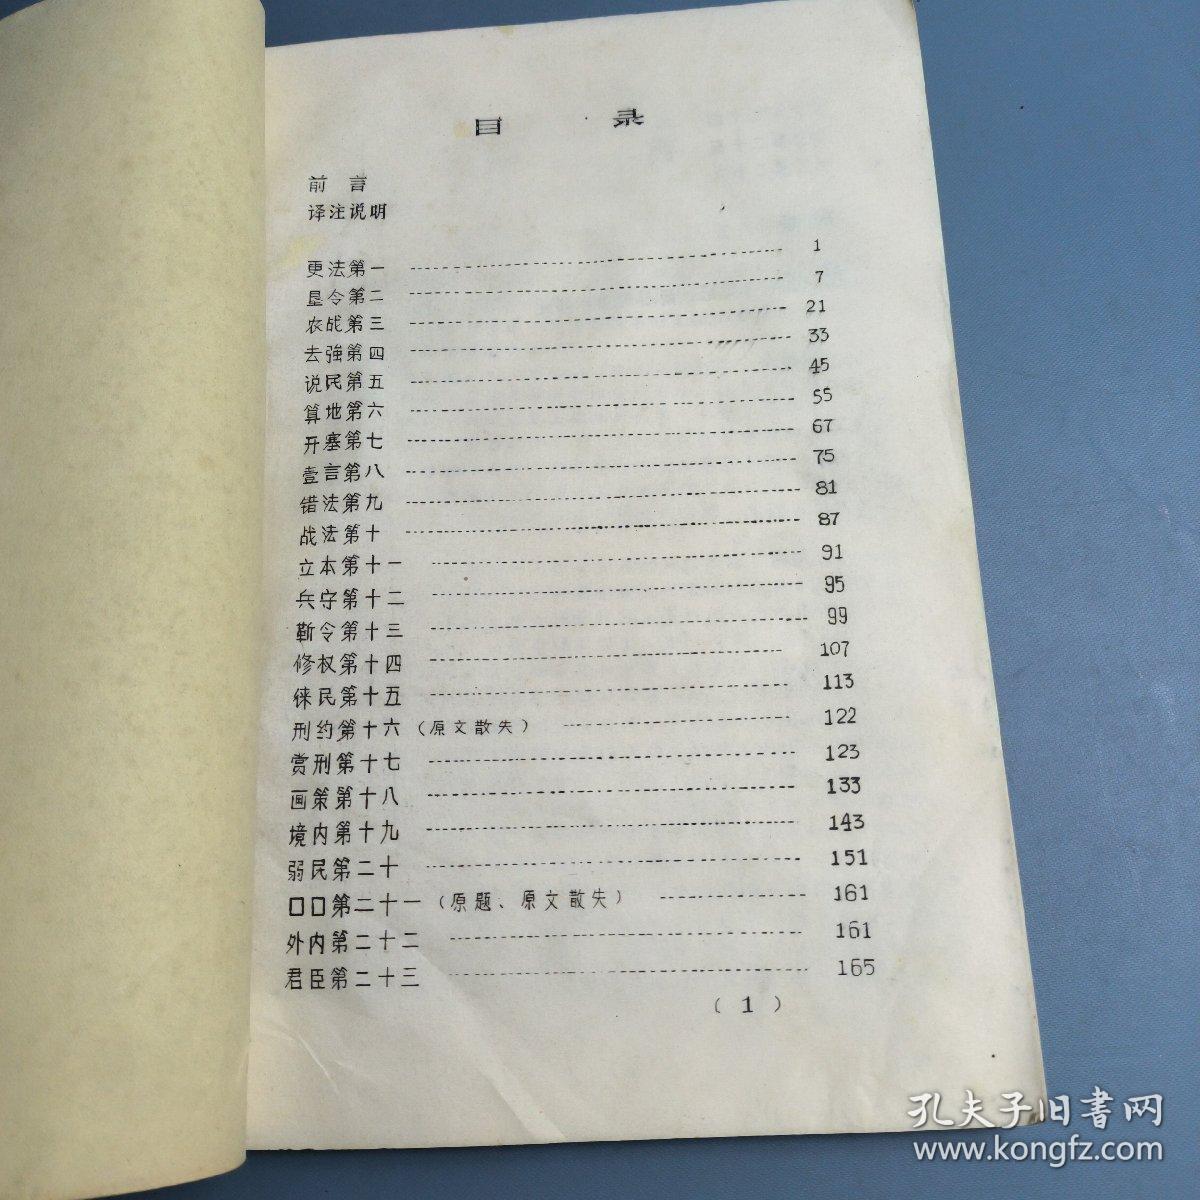 目 录
前 言
译注说明
更法第一 1
垦令第二 7
农战第三 21
去強第四 33
说民第五 45
算地第六 55
开塞第七 67
壹言第八 75
错法第九 81
战法第十 87
立本第十一 91
兵守第十二 95
靳令第十三 99
修权第十四 107
徕民第十五 113
刑约第十六(原文散失) 122
赏刑第十七 123
画策第十八 133
境内第十九 143
弱民第二十 151
口口第二十一(原题、原文散失) 161
外内第二十二 161
君臣第二十三 165
(1)
孔夫子旧書网
www.kongfz.com